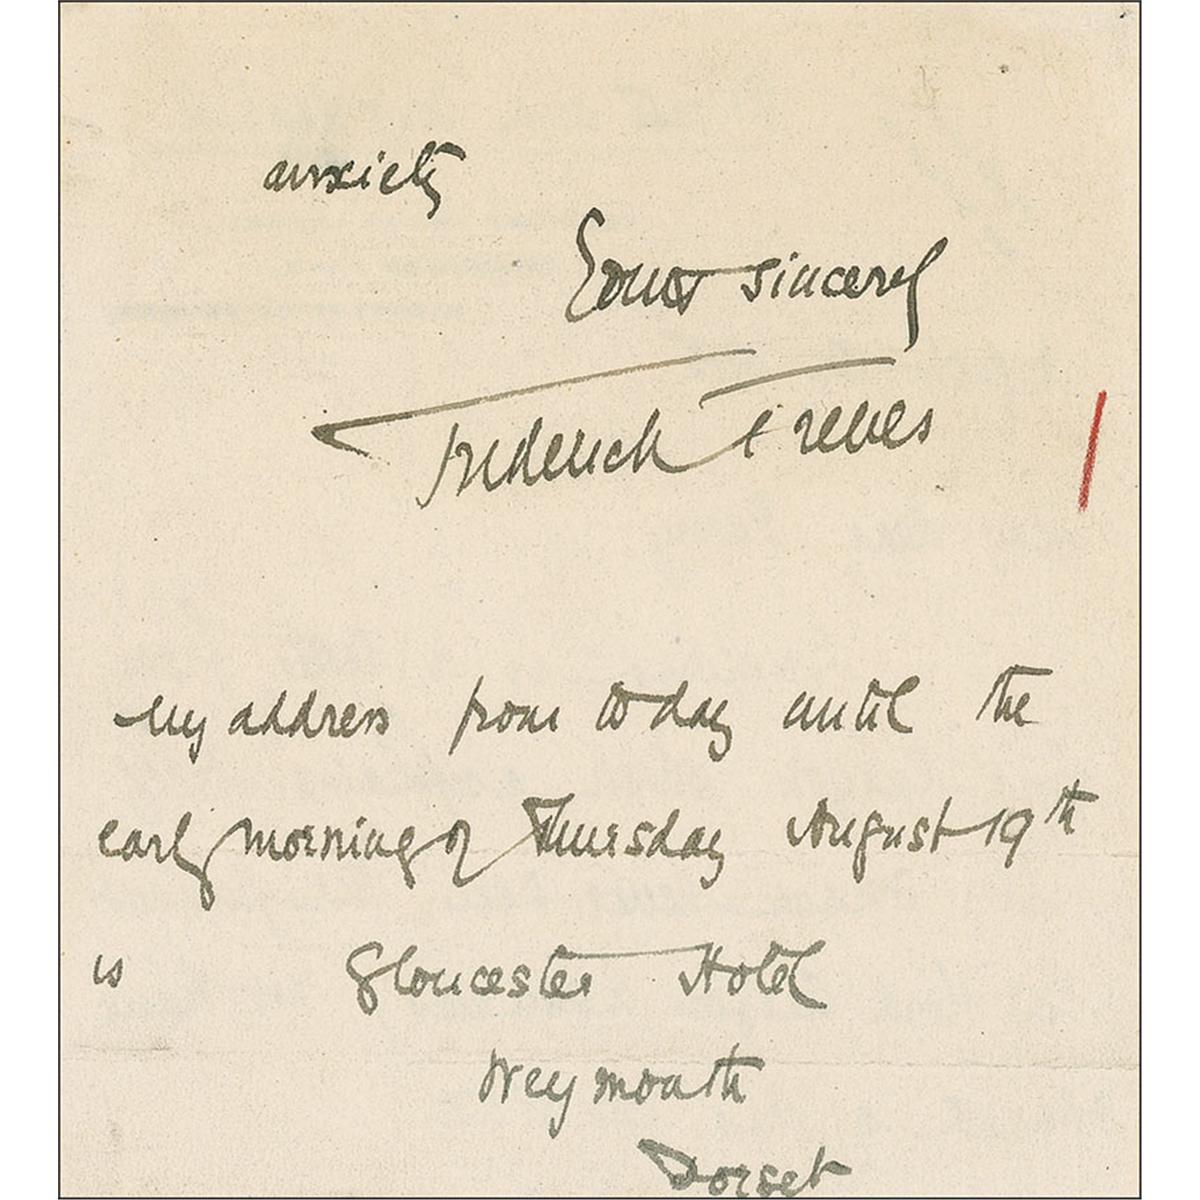 anxiety
Yours sincerely
Frederick Treves
My address from to day until the
early morning of Thursday August 19th
is Gloucester Hotel
Weymouth
Dorset